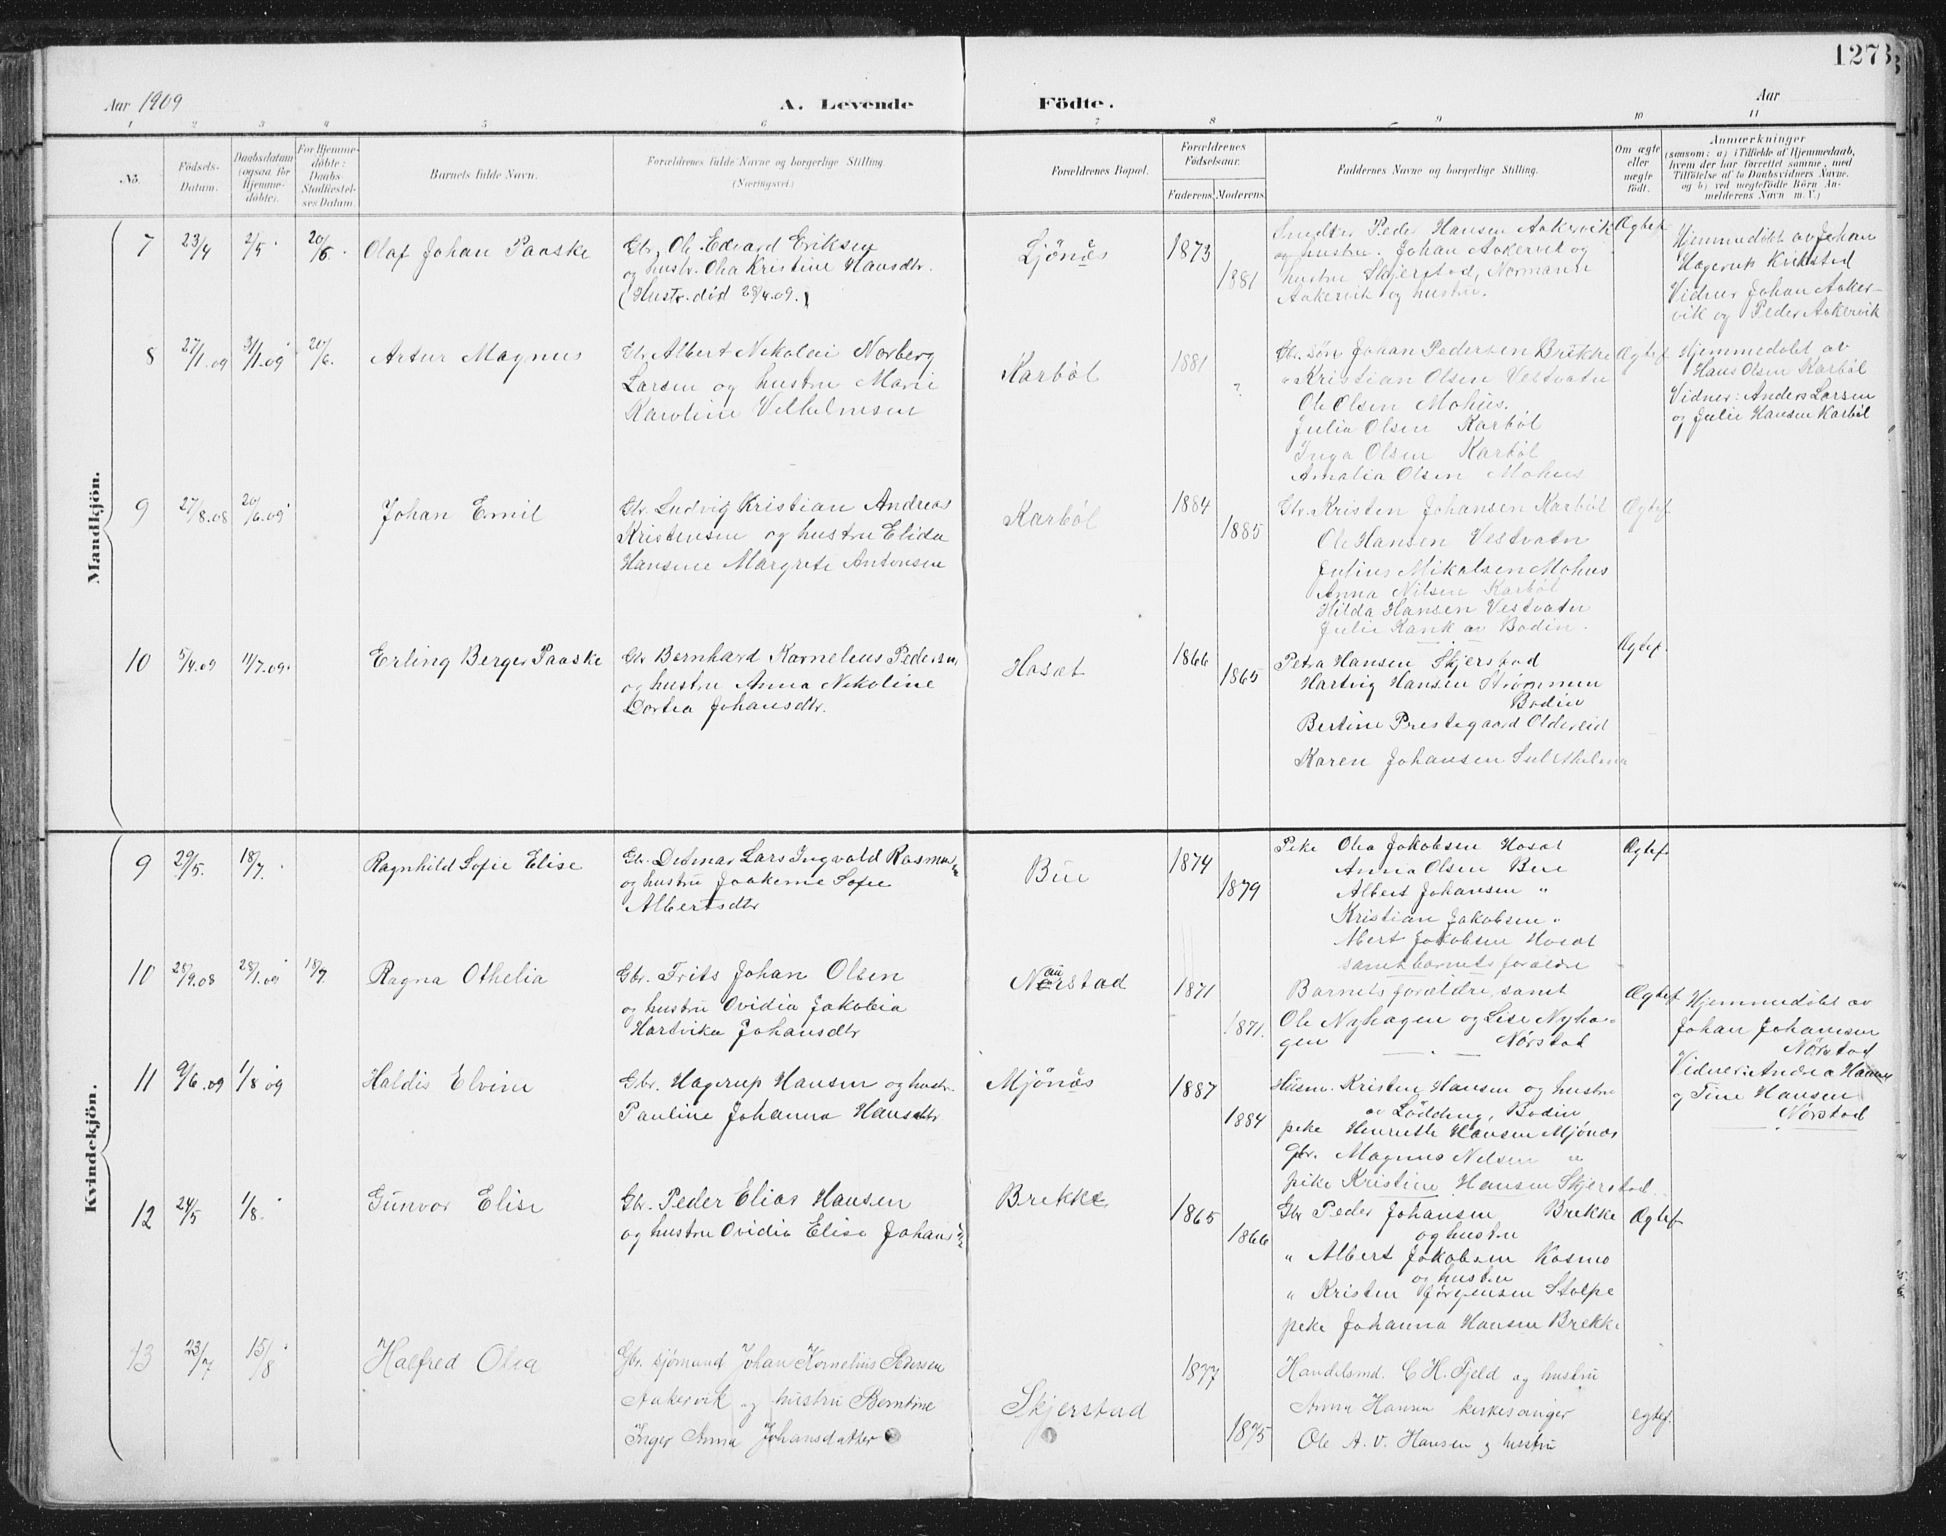 127
Aar 1909
A. Levende Födte.
Aar
1 2 3 4 5 6 7 8 9 10 11
No.
Födsels-
Datum.
Daabsdatum
(ogsaa for
Hjemme-
döbte).
For Hjemme-
döbte:
Daabs-
Stadfæstel-
ses Datum.
Barnets fulde Navn.
Forældrenes fulde Navne og borgerlige Stilling
(Næringsvei)
Forældrenes Bopæl.
Forældrenes
Födselsaar.
Faderens. Moderens.
Faddernes Navne og borgerlige Stilling.
Om ægte
eller
uægte
födt.
Anmærkninger
(saasom: a) i Tilfælde af Hjemmedaab,
hvem der har forrettet samme, med
Tilföielse af to Daabsvidners Navne.
og b) ved uægtefödte Börn An-
melderens Navn m. V.)
Mandkjön.
7 23/4 2/5 20/6 Olaf Johan Paaske
Gbr. Ole Edvard Eriksen
og hustr. Olea Kristine Hansdtr.
(Hustr. död 28/4.09.)
Ljönæs
1873
1881
Peder Hansen Aakervik
og hustru. Johan Aakervik og
hustru Skjerstad, Normann
Aakervik og hustru.
Ægtef.
Hjemmedöbt av Johan
Hagerup Kirkstad
Vidner Johan Aaker-
vik og Peder Aakervik
8 27/1.09 31/1.09 20/6. Artur Magnus
Gbr. Albert Nikolai Norberg
Larsen og hustru Marie
Karoline Vilhelmsen
Karböl
1881
?
Gbr. sön Johan Pedersen Brekke
Kristian Olsen Vestvatn
Ole Olsen Mohus.
Julia Olsen Karböl
Inga Olsen Karböl
Amalia Olsen Mohus
Ægtef.
Hjemmedöbt av
Hans Olsen Karböl
Vidner: Anders Larsen
og Julie Hansen Karböl
9 27/8.08 20/6.09 Johan Emil
Gbr. Ludvig Kristian Andreas
Kristensen og hustru Elida
Hansine Margrete Antonsen
Karböl
1884
1885
Gbr. Kristen Johansen Karböl
Ole Hansen Vestvatn
Julius Mikalsen Mohus
Anna Nilsen Karböl
Hilda Hansen Vestvatn
Julie Kank av Bodin.
Ægtef.
10 5/4.09 11/7.09. Erling Berger Paaske
Gbr Bernhard Kornelius Pedersen
og hustru Anna Nikoline
Dortea Johansdtr.
Hosæt
1866
1865
Petra Hansen Skjerstad
Hartvig Hansen Strömmen
Bodin
Bertine Prestegaard Oldereid
Karen Johansen Sulithelma
Ægtef.
Kvindekjön.
9 29/5. 18/7. Ragnhild Sofie Elise
Gbr. Detmar Lars Ingvald Rasmus
og hustru Joakime Sofie
Albertsdtr
Bue
1874
1879
Peke Olea Jakobsen Hosæt
Anna Olsen Bue
Albert Johansen "
Kristian Jakobsen "
Albert Jakobsen Hosæt
samt barnets forældre
Ægtef.
10 28/9.08 28/1.09 18/7. Ragna Othelia
Gbr. Frits Johan Olsen
og hustru Ovidia Jakobia
Hartvika Johansdtr
Naurstad
1871
1871.
Barnets forældre, samt
Ole Nyhagen og Lise Nyha-
gen Nörstad
Ægtef
Hjemmedöbt av
Johan Johansen
Nörstad
Vidner: Andrea Hansen
og Tine Hansen
Nörstad
11 9/6.09 1/8 09 Haldis Elvine
Gbr. Hagerup Hansen og hustr.
Pauline Johanna Hansdtr
Mjönæs
1887
1884
Husm. Kristen Hansen og hustru
av Lödding, Bodin
peke Henriette Hansen Mjönæs
Gbr. Magnus Nilsen "
pike Kristine Hansen Skjerstad.
12 24/5 1/8. Gunvor Elise
Gbr. Peder Elias Hansen
og hustru Ovidia Elise Johans
Brekke
1865
1866
Gbr Peder Johansen Brekke
og hustru
" Albert Jakobsen Kosmo
og hustru
" Kristen Jörgensen Stolpe
peke Johanna Hansen Brekke
Ægtef
13 23/7 15/8 Halfred Olea
Gbr. sjömand Johan Kornelius Pedersen
Aakervik og hustru Berntine
Inger Anna Johansdatter
Skjerstad
1877
1875
Handelsmd. C. H. Fjeld og hustru
Anna Hansen kirkesanger
Ole A. V. Hansen og hustru
egtef.